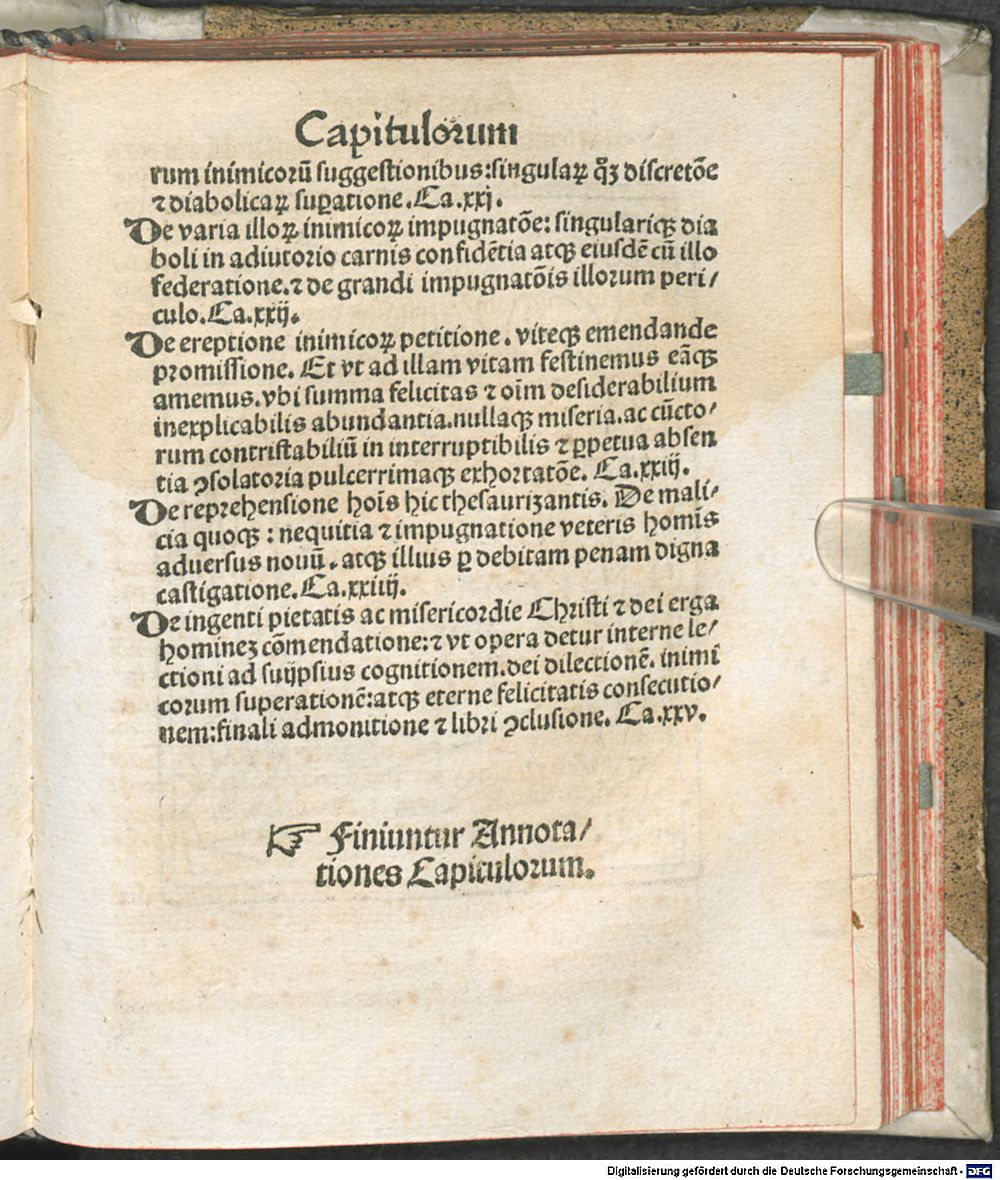 Capitulorum
rum inimicorū suggestionibus:singulaꝝ qꝫ discretōe
⁊ diabolicaꝝ suꝑatione.Ca.xxj.
De varia illoꝝ inimicoꝝ impugnatōe: singulariqꝫ dia
boli in adiutorio carnis confidētia atqꝫ eiusdē cū illo
federatione.⁊ de grandi impugnatōis illorum peri/
culo.Ca.xxij.
De ereptione inimicoꝝ petitione. viteqꝫ emendande
promissione. Et vt ad illam vitam festinemus eāqꝫ
amemus.vbi summa felicitas ⁊ oīm desiderabilium
inexplicabilis abundantia.nullaqꝫ miseria.ac cūcto/
rum contristabiliū in interruptibilis ⁊ ꝑpetua absen
tia ꝯsolatoria pulcerrimaqꝫ exhortatōe. Ca.xxiij.
De reprehensione hoīs hic thesaurizantis. De mali/
cia quoqꝫ : nequitia ⁊ impugnatione veteris homīs
adversus nouū. atqꝫ illius ꝑ debitam penam digna
castigatione.Ca.xxiiij.
De ingenti pietatis ac misericordie Christi ⁊ dei erga
hominez cōmendatione:⁊ vt opera detur interne le/
ctioni ad suijpsius cognitionem.dei dilectionē. inimi
corum superationē:atqꝫ eterne felicitatis consecutio/
nem:finali admonitione ⁊ libri ꝯclusione. Ca.xxv.
☞ Finiuntur Annota/
tiones Capitulorum.
Digitalisierung gefördert durch die Deutsche Forschungsgemeinschaft - DFG